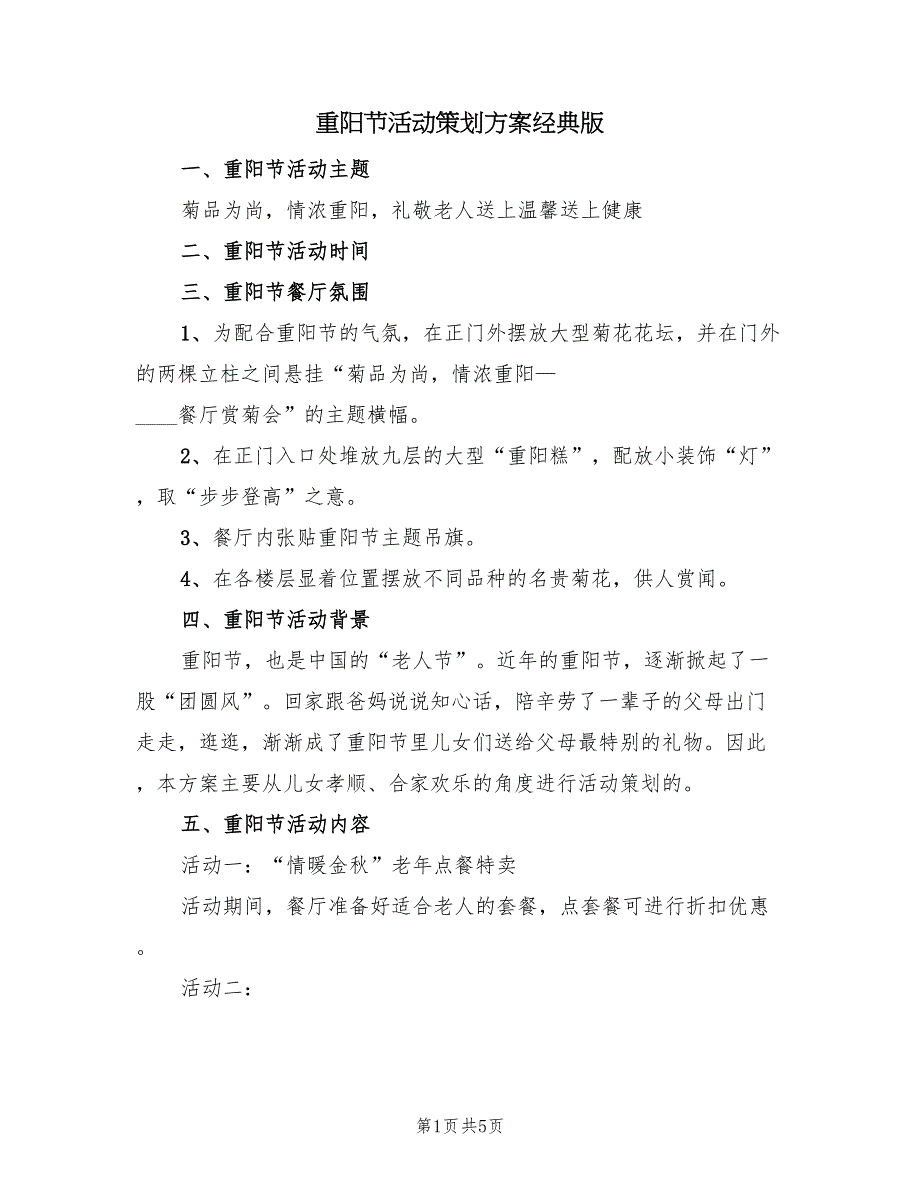 重阳节活动策划方案经典版
一、重阳节活动主题
菊品为尚，情浓重阳，礼敬老人送上温馨送上健康
二、重阳节活动时间
三、重阳节餐厅氛围
1、为配合重阳节的气氛，在正门外摆放大型菊花花坛，并在门外
的两棵立柱之间悬挂“菊品为尚，情浓重阳—
____餐厅赏菊会”的主题横幅。
2、在正门入口处堆放九层的大型“重阳糕”，配放小装饰“灯”
，取“步步登高”之意。
3、餐厅内张贴重阳节主题吊旗。
4、在各楼层显着位置摆放不同品种的名贵菊花，供人赏闻。
四、重阳节活动背景
重阳节，也是中国的“老人节”。近年的重阳节，逐渐掀起了一
股“团圆风”。回家跟爸妈说说知心话，陪辛劳了一辈子的父母出门
走走，逛逛，渐渐成了重阳节里儿女们送给父母最特别的礼物。因此
，本方案主要从儿女孝顺、合家欢乐的角度进行活动策划的。
五、重阳节活动内容
活动一：“情暖金秋”老年点餐特卖
活动期间，餐厅准备好适合老人的套餐，点套餐可进行折扣优惠
。
活动二：
第1页 共5页